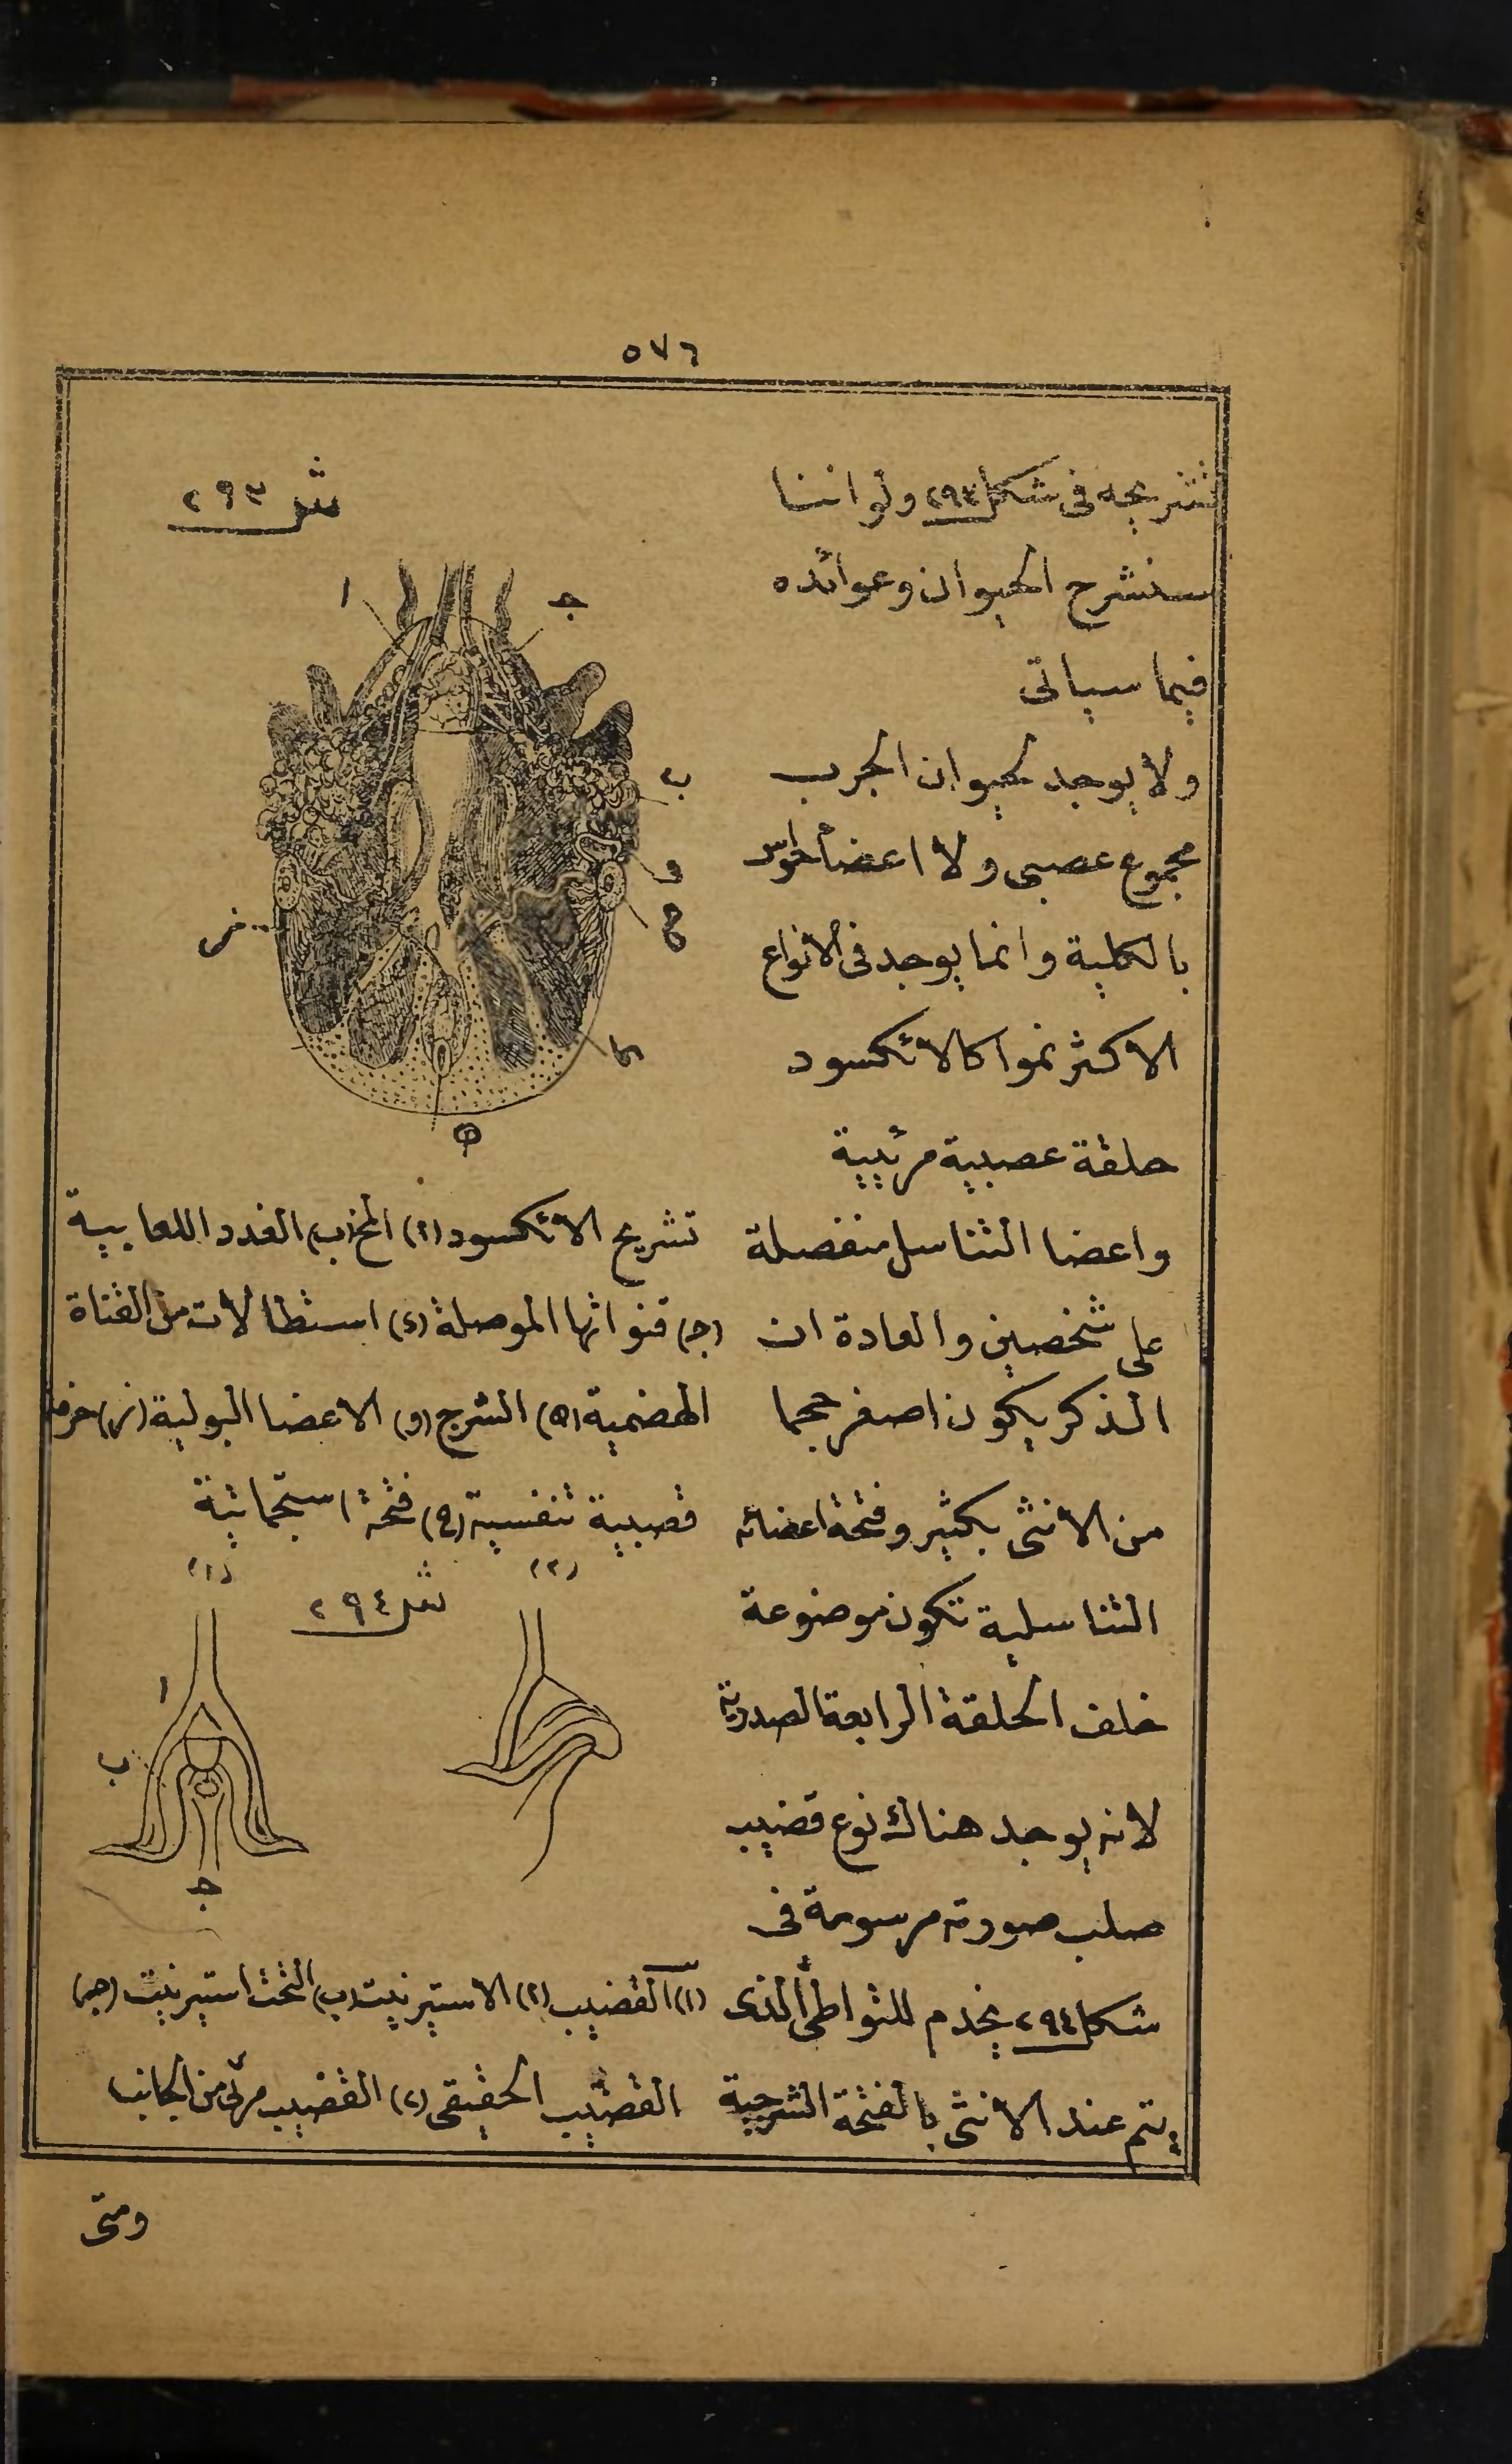 ٥٧٦
تشريحه فى شكل ٢٩٣ ولو اننا
سنشرح الحيوان وعوائده
فيما سياتى
ولا يوجد لحيوان الجرب
مجموع عصبى ولا اعضأ حواس
بالكلية وانما يوجد فى الانواع
الاكثر نموا كالائكسود
حلقة عصبية مرئيية
واعضا التناسل منفصلة
على شخصين والعادة ان
الذكر يكون اصغر حجما
من الانثى بكثير وفتحة اعضائه
التناسلية تكون موضوعة
خلف الحلقة الرابعة الصدرية
لانه يوجد هناك نوع قضيب
صلب صورته مرسومة فى
شكل ٢٩٤ يخدم للتواطى الذى
يتم عند الانثى بالفتحة الشرجية
شل ٢٩٣
ا
ج
ب
و
ح
ز
د
ه
تشريح الائكسود (ا) المخ (ب) الغدد اللعابية
(ج) قنواتها الموصلة (د) استطالات من القناة
الهضمية (ه) الشرج (و) الاعضا البولية (ز) حزمة
قصبية تنفسية (ح) فتحة استجماتية
شل ٢٩٤
(١)
(٢)
ا
ب
ج
(١) القضيب (ا) الاستيرنيت (ب) التحت استيرنيت (ج)
القضيب الحقيقى (٢) القضيب مرئى من الجانب
ومتى